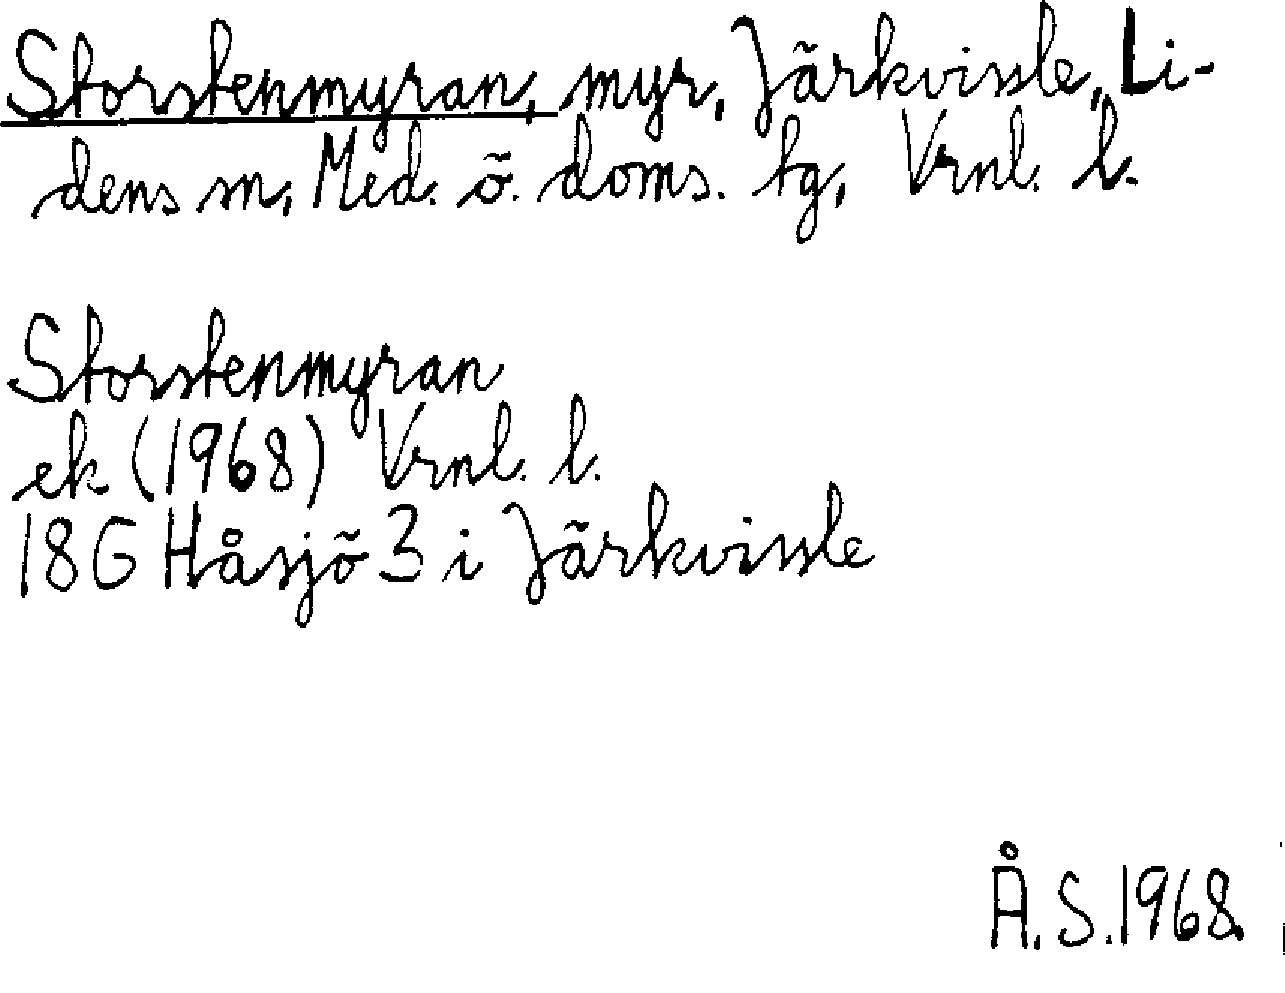 Storstenmyran, myr, Järkvissle, Li-
dens sn, Med. ö. doms. tg, Vrnl. l.
Storstenmyran
ek (1968) Vrnl. l.
18G Håsjö 3 i Järkvissle
Å.S.1968.